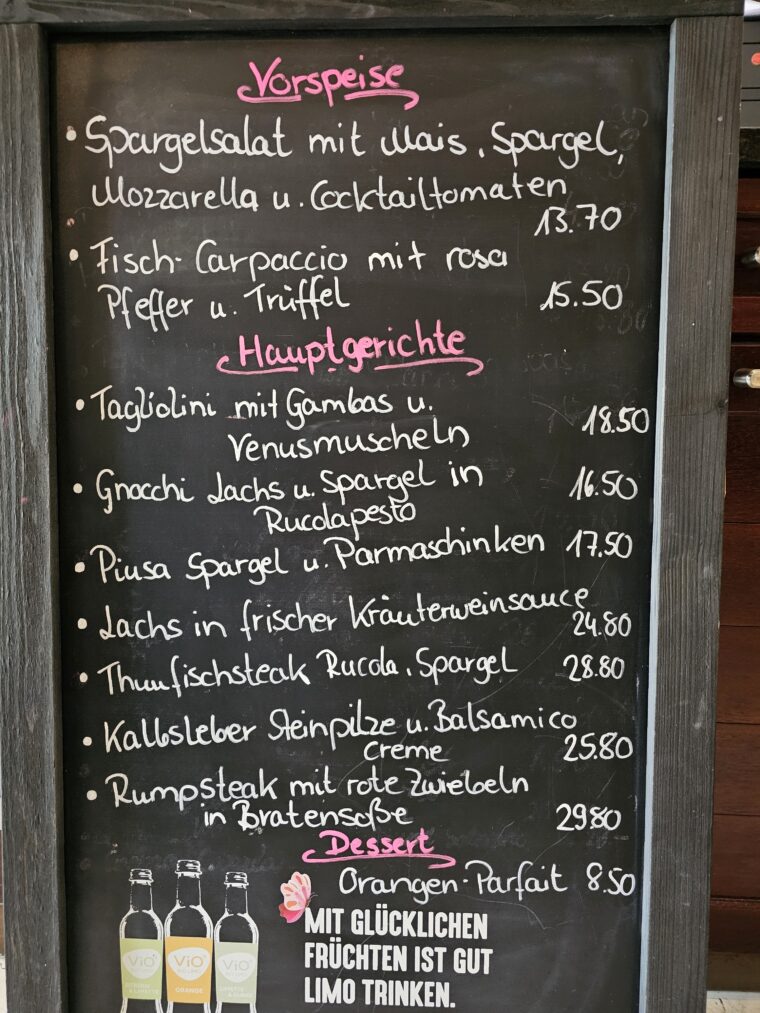 Vorspeise
• Spargelsalat mit Mais, Spargel,
Mozzarella u. Cocktailtomaten
13.70
• Fisch-Carpaccio mit rosa
Pfeffer u. Trüffel 15.50
Hauptgerichte
• Tagliolini mit Gambas u.
Venusmuscheln 18.50
• Gnocchi Lachs u. Spargel in 16.50
Rucolapesto
• Piusa Spargel u. Parmaschinken 17.50
• Lachs in frischer Kräuterweinsauce
24.80
• Thunfischsteak Rucola, Spargel 28.80
• Kalbsleber Steinpilze u. Balsamico
Creme 25.80
• Rumpsteak mit rote Zwiebeln
in Bratensoße 29.80
Dessert
Orangen-Parfait 8.50
MIT GLÜCKLICHEN
FRÜCHTEN IST GUT
LIMO TRINKEN.
ViO
ViO
ORANGE
ViO